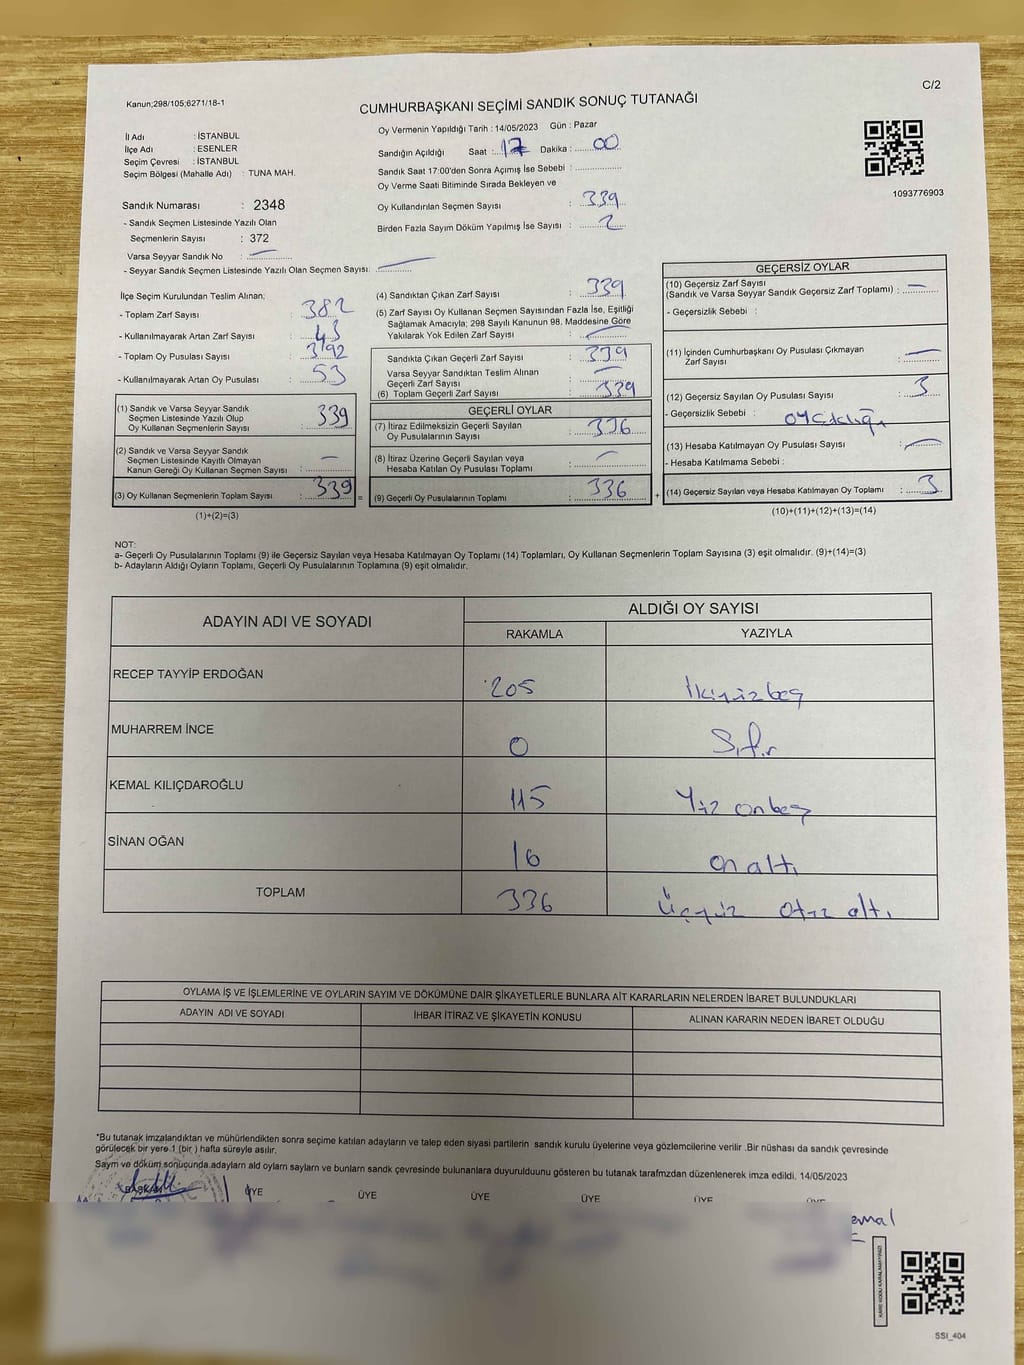 Kanun;298/105;6271/18-1
C/2
CUMHURBAŞKANI SEÇİMİ SANDIK SONUÇ TUTANAĞI
İl Adı : İSTANBUL
İlçe Adı : ESENLER
Seçim Çevresi : İSTANBUL
Seçim Bölgesi (Mahalle Adı) : TUNA MAH.
Sandık Numarası : 2348
- Sandık Seçmen Listesinde Yazılı Olan
Seçmenlerin Sayısı : 372
Varsa Seyyar Sandık No :
- Seyyar Sandık Seçmen Listesinde Yazılı Olan Seçmen Sayısı:
Oy Vermenin Yapıldığı Tarih : 14/05/2023 Gün : Pazar
Sandığın Açıldığı Saat : 17 Dakika : 00
Sandık Saat 17:00'den Sonra Açımış İse Sebebi :
Oy Verme Saati Bitiminde Sırada Bekleyen ve
Oy Kullandırılan Seçmen Sayısı : 339
Birden Fazla Sayım Döküm Yapılmış İse Sayısı : 2
1093776903
İlçe Seçim Kurulundan Teslim Alınan;
- Toplam Zarf Sayısı : 382
- Kullanılmayarak Artan Zarf Sayısı : 43
- Toplam Oy Pusulası Sayısı : 392
- Kullanılmayarak Artan Oy Pusulası : 53
(1) Sandık ve Varsa Seyyar Sandık
Seçmen Listesinde Yazılı Olup
Oy Kullanan Seçmenlerin Sayısı : 339
(2) Sandık ve Varsa Seyyar Sandık
Seçmen Listesinde Kayıtlı Olmayan
Kanun Gereği Oy Kullanan Seçmen Sayısı : –
(3) Oy Kullanan Seçmenlerin Toplam Sayısı : 339 =
(1)+(2)=(3)
(4) Sandıktan Çıkan Zarf Sayısı : 339
(5) Zarf Sayısı Oy Kullanan Seçmen Sayısından Fazla İse, Eşitliği
Sağlamak Amacıyla; 298 Sayılı Kanunun 98. Maddesine Göre
Yakılarak Yok Edilen Zarf Sayısı :
Sandıkta Çıkan Geçerli Zarf Sayısı : 339
Varsa Seyyar Sandıktan Teslim Alınan
Geçerli Zarf Sayısı :
(6) Toplam Geçerli Zarf Sayısı : 339
GEÇERLİ OYLAR
(7) İtiraz Edilmeksizin Geçerli Sayılan
Oy Pusulalarının Sayısı : 336
(8) İtiraz Üzerine Geçerli Sayılan veya
Hesaba Katılan Oy Pusulası Toplamı :
(9) Geçerli Oy Pusulalarının Toplamı : 336 +
GEÇERSİZ OYLAR
(10) Geçersiz Zarf Sayısı
(Sandık ve Varsa Seyyar Sandık Geçersiz Zarf Toplamı) : –
- Geçersizlik Sebebi :
(11) İçinden Cumhurbaşkanı Oy Pusulası Çıkmayan
Zarf Sayısı :
(12) Geçersiz Sayılan Oy Pusulası Sayısı : 3
- Geçersizlik Sebebi :
(13) Hesaba Katılmayan Oy Pusulası Sayısı :
- Hesaba Katılmama Sebebi :
(14) Geçersiz Sayılan veya Hesaba Katılmayan Oy Toplamı : 3
(10)+(11)+(12)+(13)=(14)
NOT:
a- Geçerli Oy Pusulalarının Toplamı (9) ile Geçersiz Sayılan veya Hesaba Katılmayan Oy Toplamı (14) Toplamları, Oy Kullanan Seçmenlerin Toplam Sayısına (3) eşit olmalıdır. (9)+(14)=(3)
b- Adayların Aldığı Oyların Toplamı, Geçerli Oy Pusulalarının Toplamına (9) eşit olmalıdır.
ADAYIN ADI VE SOYADI ALDIĞI OY SAYISI
RAKAMLA YAZIYLA
RECEP TAYYİP ERDOĞAN 205 İkiyüzbeş
MUHARREM İNCE 0 Sıfır
KEMAL KILIÇDAROĞLU 115 Yüz onbeş
SİNAN OĞAN 16 on altı
TOPLAM 336 Üçyüz otuz altı
OYLAMA İŞ VE İŞLEMLERİNE VE OYLARIN SAYIM VE DÖKÜMÜNE DAİR ŞİKAYETLERLE BUNLARA AİT KARARLARIN NELERDEN İBARET BULUNDUKLARI
ADAYIN ADI VE SOYADI İHBAR İTİRAZ VE ŞİKAYETİN KONUSU ALINAN KARARIN NEDEN İBARET OLDUĞU
*Bu tutanak imzalandıktan ve mühürlendikten sonra seçime katılan adayların ve talep eden siyasi partilerin sandık kurulu üyelerine veya gözlemcilerine verilir .Bir nüshası da sandık çevresinde
görülecek bir yere 1 (bir ) hafta süreyle asılır.
Sayım ve döküm sonuçunda adayların ald oyların sayların ve bunların sandk çevresinde bulunanlara duyurulduunu gösteren bu tutanak tarafmzdan düzenlenerek imza edildi. 14/05/2023
BAŞKAN ÜYE ÜYE ÜYE ÜYE ÜYE ÜYE
emal
KARE KODU KARALAMAYINIZ!
SSI_404